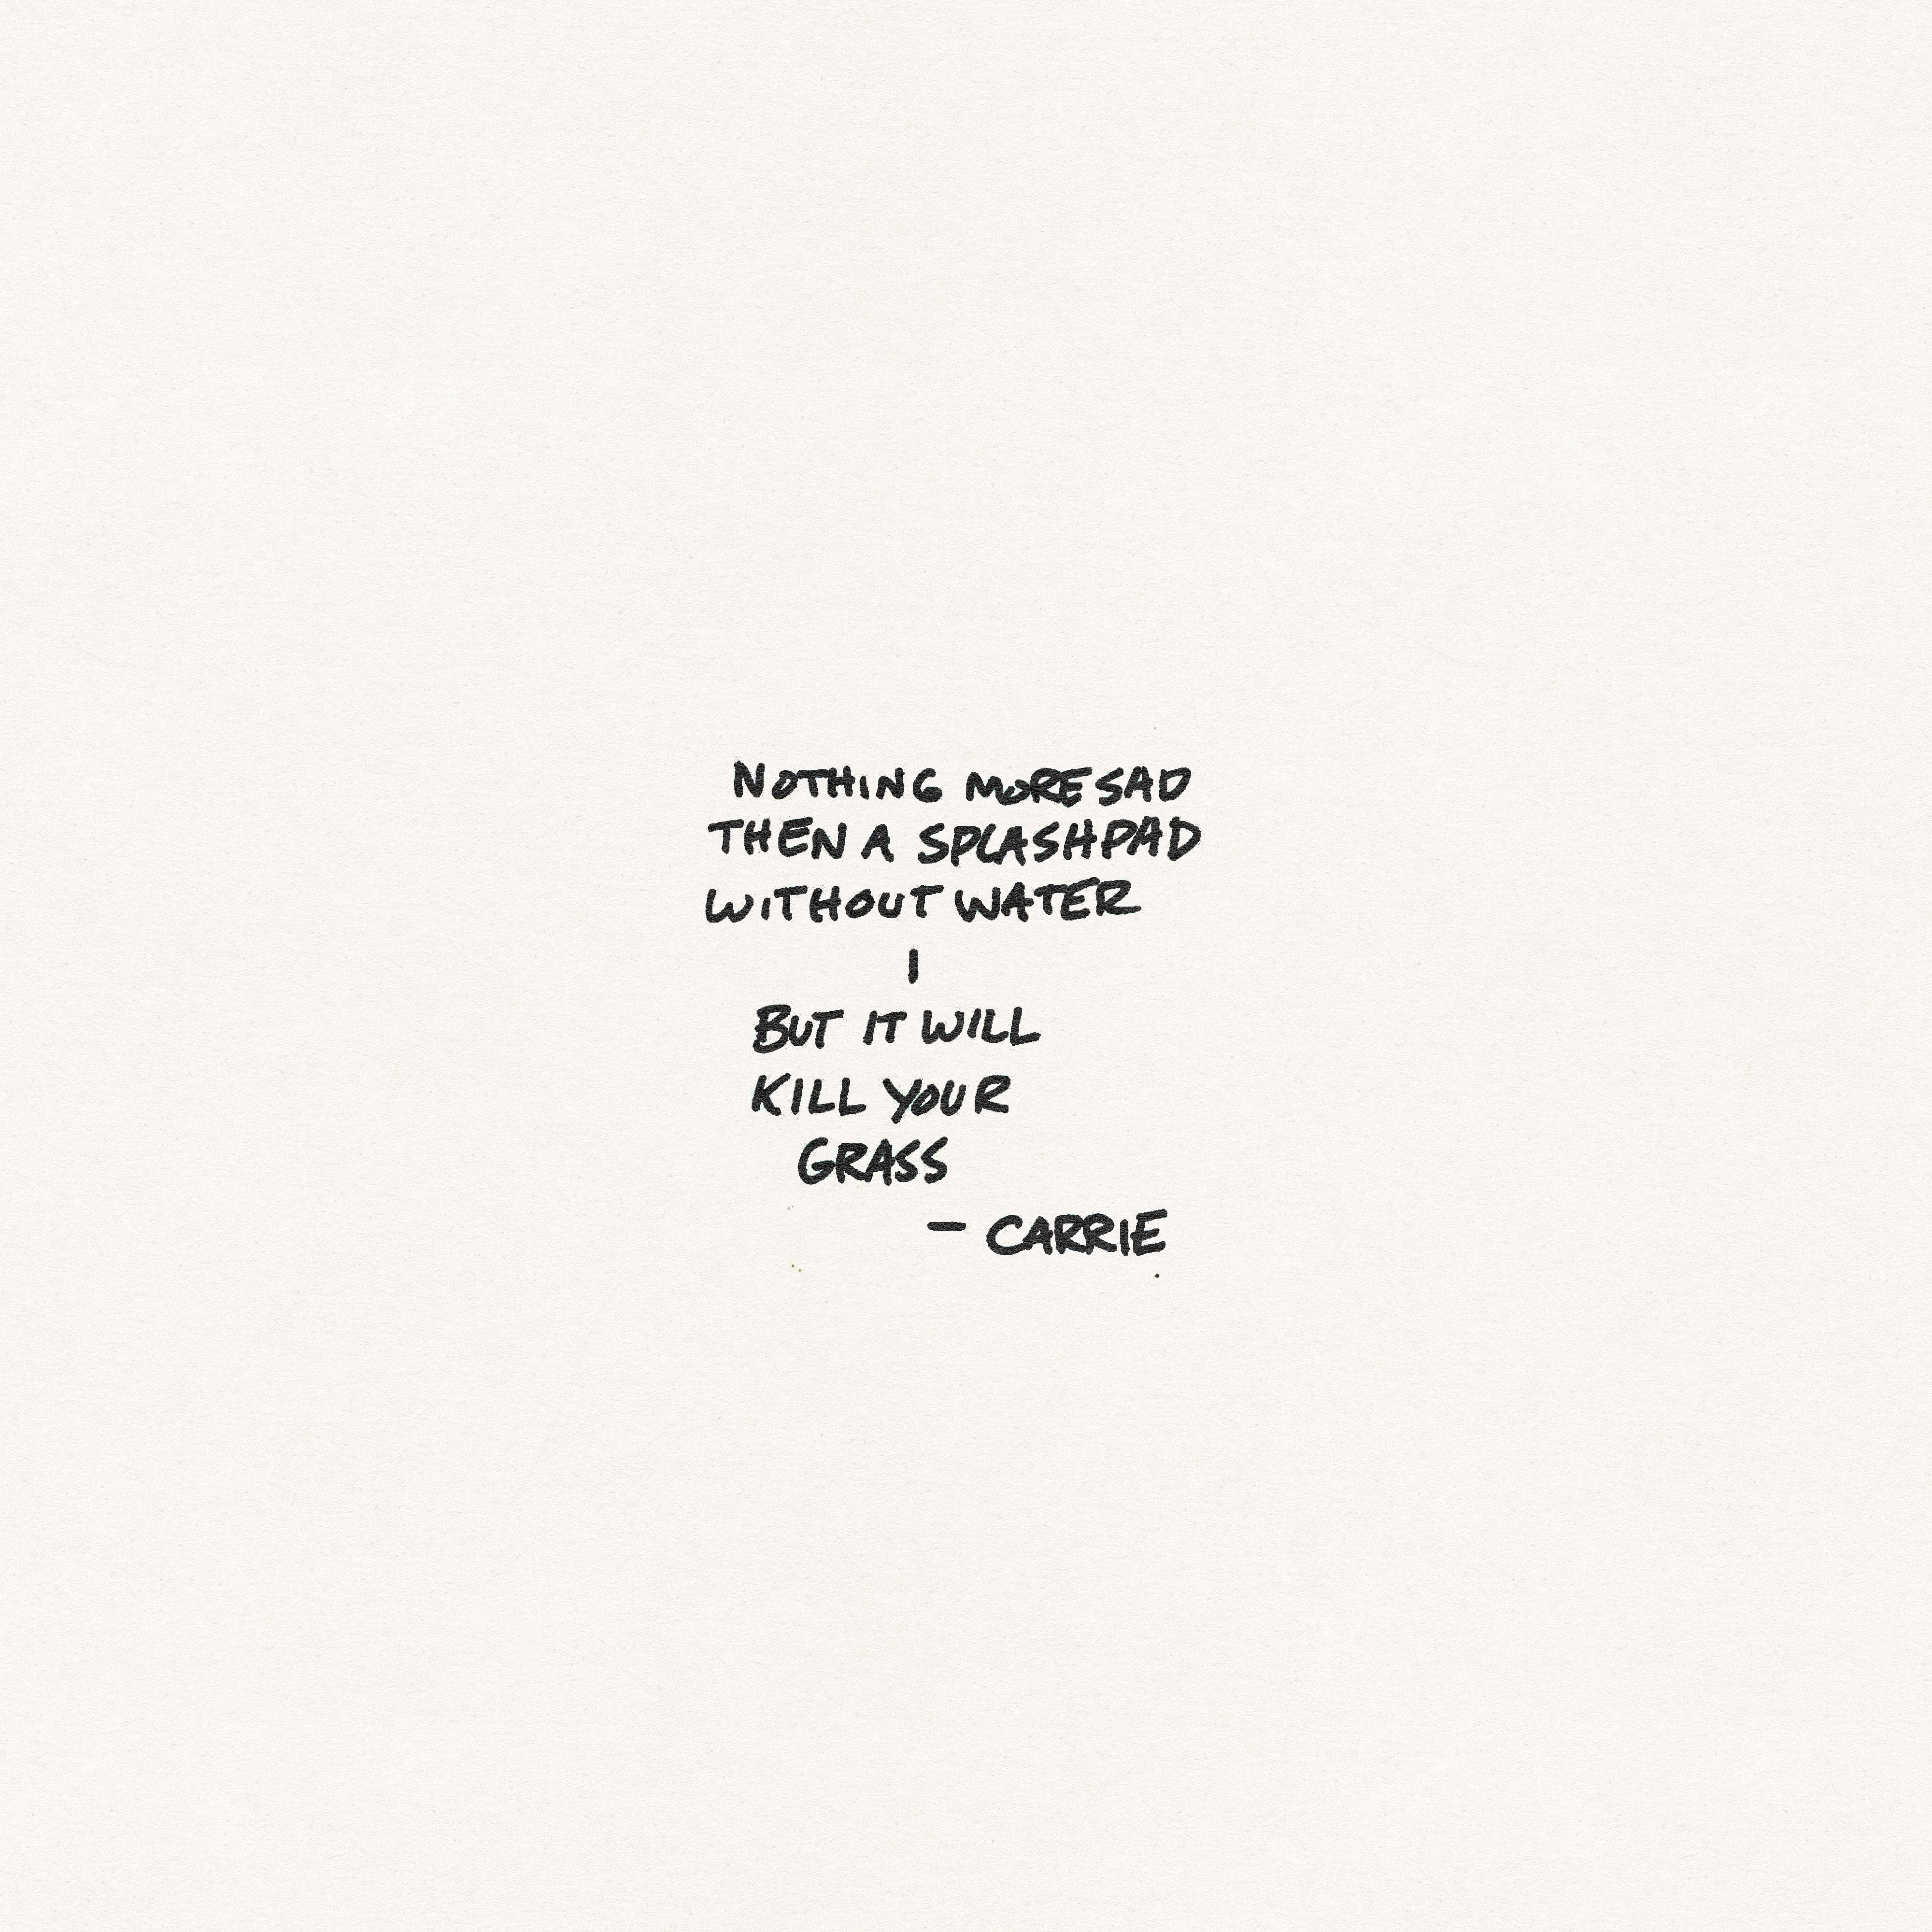 NOTHING MORE SAD
THEN A SPLASHPAD
WITHOUT WATER
|
BUT IT WILL
KILL YOUR
GRASS
- CARRIE